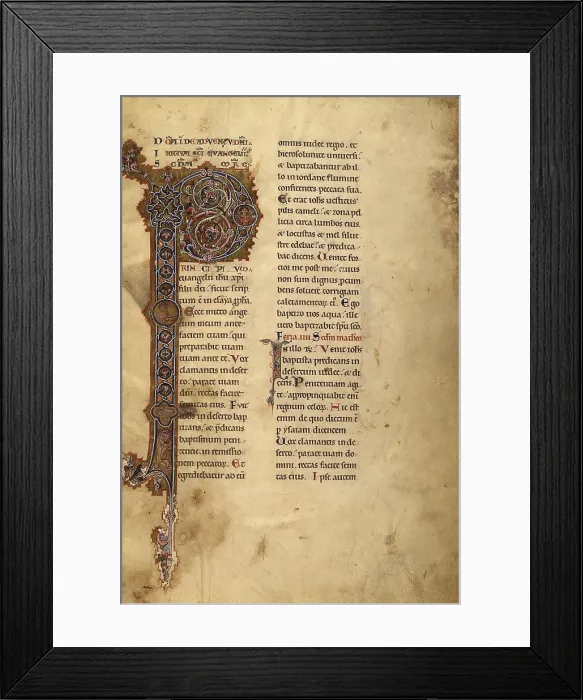 RIN CI PI VM
euangelii ihu xpi
filii dei. sicut scrip
tum ē in esaya ppha.
Ecce mitto ange
lum meum ante
faciem tuam. qui
preparabit uiam
tuam ante te. Vox
clamantis in deser
to. parate uiam
dñi. rectas facite
semitas eius. Fuit
iohs in deserto bap
tizans. & p̄dicans
baptismum peni
tentie. in remissio
nem peccatoꝝ. Et
egrediebatur ad eū
omnis iudee regio. et
hierosolimite uniuersi.
& baptizabantur ab il
lo in iordane flumine
confitentes peccata sua.
Et erat iohs uestitus
pilis cameli. & zona pel
licia circa lumbos eius.
& locustas & mel silue
stre edebat. & predica
bat dicens. Uenit for
tior me post me. cuius
non sum dignus ꝓcum
bens soluere corrigiam
calciamentoꝝ ei. Ego
baptizo uos aqua. ille
uero baptizabit spū scō.
Feria iiii Scdm matheū
In illo tꝭ. Venit iohs
baptista predicans in
desertum iudee. & di
cens. Penitentiam agi
te. appropinquabit eni
regnum celoꝝ. Hic est
enim de quo dictum ē
p ysaiam dicentem
Uox clamantis in de
serto. parate uiam do
mini. rectas facite semi
tas eius. Ipse autem